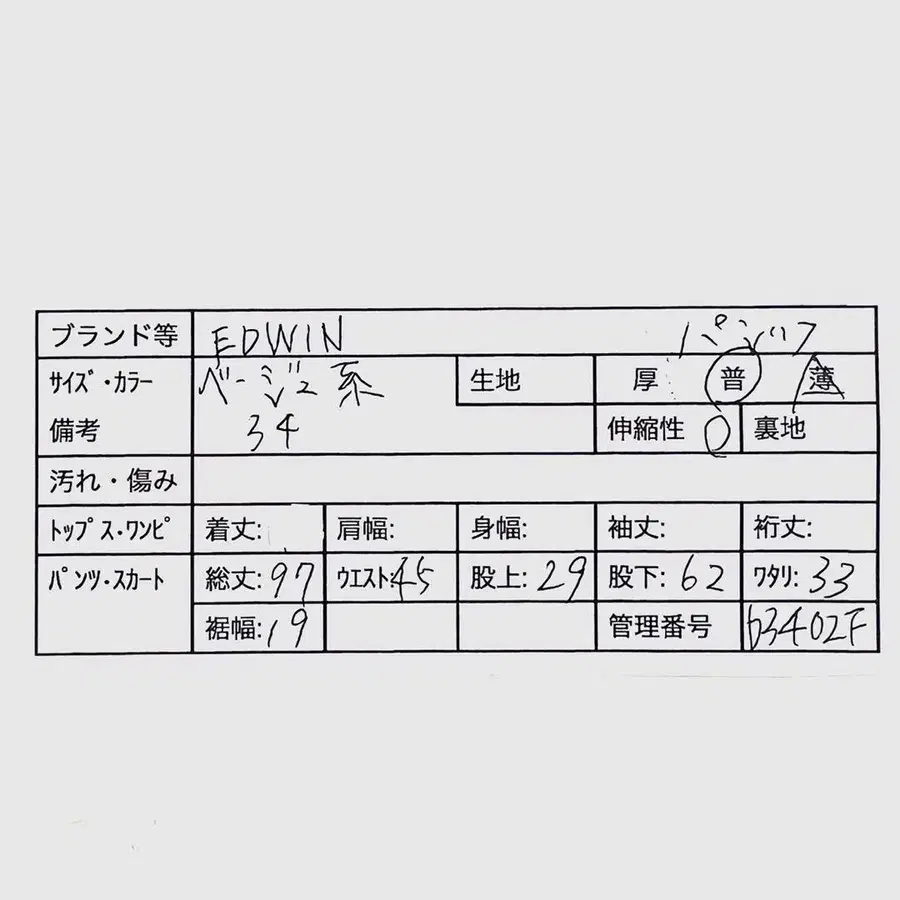 ブランド等 EDWIN パンツ
サイズ・カラー ベージュ系 生地 厚 普 薄
備考 34 伸縮性 0 裏地
汚れ・傷み
トップス・ワンピ 着丈: 肩幅: 身幅: 袖丈: 裄丈:
パンツ・スカート 総丈:97 ウエスト:45 股上:29 股下:62 ワタリ:33
裾幅:19 管理番号 b3402F